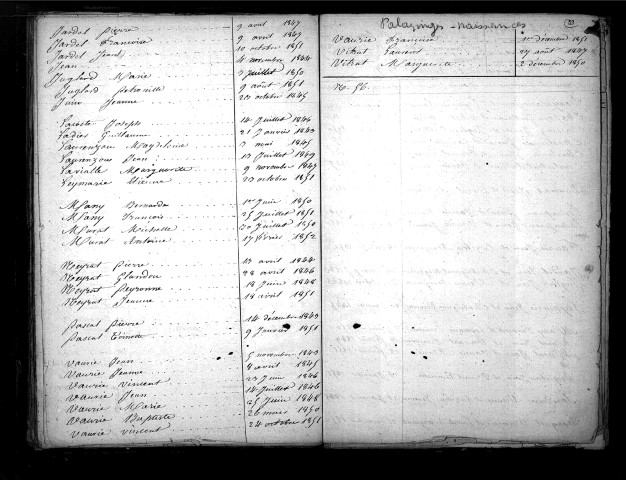 Jardel Pierre 9 août 1847
Jardel Françoise 9 avril 1849
Jardel Jean 10 octobre 1851
Jean 4 novembre 1844
Juglard Marie 3 Juillet 1850
Juglard Petronille 9 août 1851
Juin Jeanne 20 octobre 1845
Lacoste Joseph 14 Juillet 1846
Ladier Guillaume 21 Janvier 1843
Laurenzou Magdeleine 3 mai 1845
Laurenzou Jean 13 Juillet 1849
Lavialle Marguerite 9 novembre 1847
Leymarie Etienne 23 octobre 1851
Many Bernarde 1er Juin 1850
Many François 25 Juillet 1851
Murat Michelle 30 Juillet 1850
Murat Antoine 17 février 1852
Neyrat Pierre 13 avril 1844
Neyrat Glandou 28 avril 1846
Neyrat Peyronne 18 Juin 1848
Neyrat Jeanne 18 avril 1851
Pascal Pierre 14 décembre 1843
Pascal Toinette 9 Janvier 1851
Vaurie Jean 5 novembre 1843
Vaurie Jeanne 8 avril 1845
Vaurie Vincent 23 Juin 1846
Vaurie Jean 14 Juillet 1846
Vaurie Marie 25 Juin 1848
Vaurie Baptiste 26 mars 1850
Vaurie Vincent 24 octobre 1851
Palazinges - naissances
Vaurie Françoise 1er décembre 1851
Vitrat Laurent 27 août 1847
Vitrat Marguerite 2 décembre 1850
No. 56.